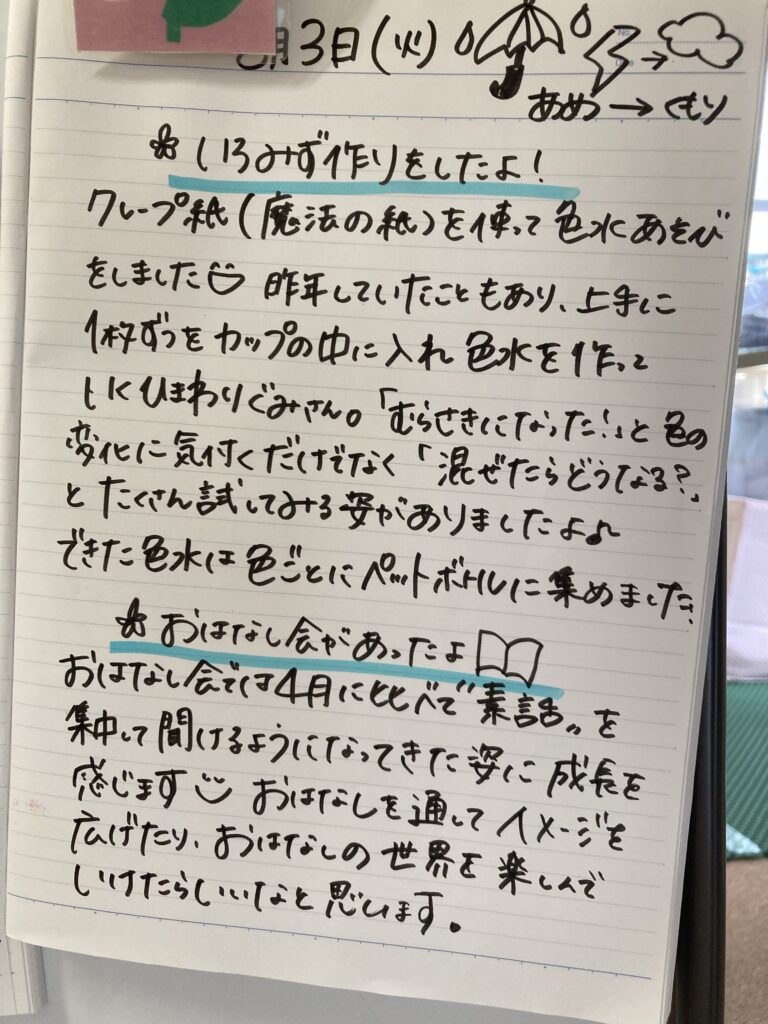 月3日(火)
あめ→くもり
いろみず作りをしたよ!
クレープ紙(魔法の紙)を使って色水あそび
をしました 昨年していたこともあり、上手に
1枚ずつをカップの中に入れ色水を作って
いくひまわりぐみさん。「むらさきになった!」と色の
変化に気付くだけでなく「混ぜたらどうなる?」
とたくさん試してみる姿がありましたよ♪
できた色水は色ごとにペットボトルに集めました。
おはなし会があったよ
おはなし会では4月にくらべて"素話"を
集中して聞けるようになってきた姿に成長を
感じます おはなしを通してイメージを
広げたり、おはなしの世界を楽しんで
いけたらいいなと思います。